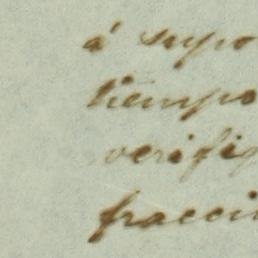 á supo
tiempo
verifiq
fracci